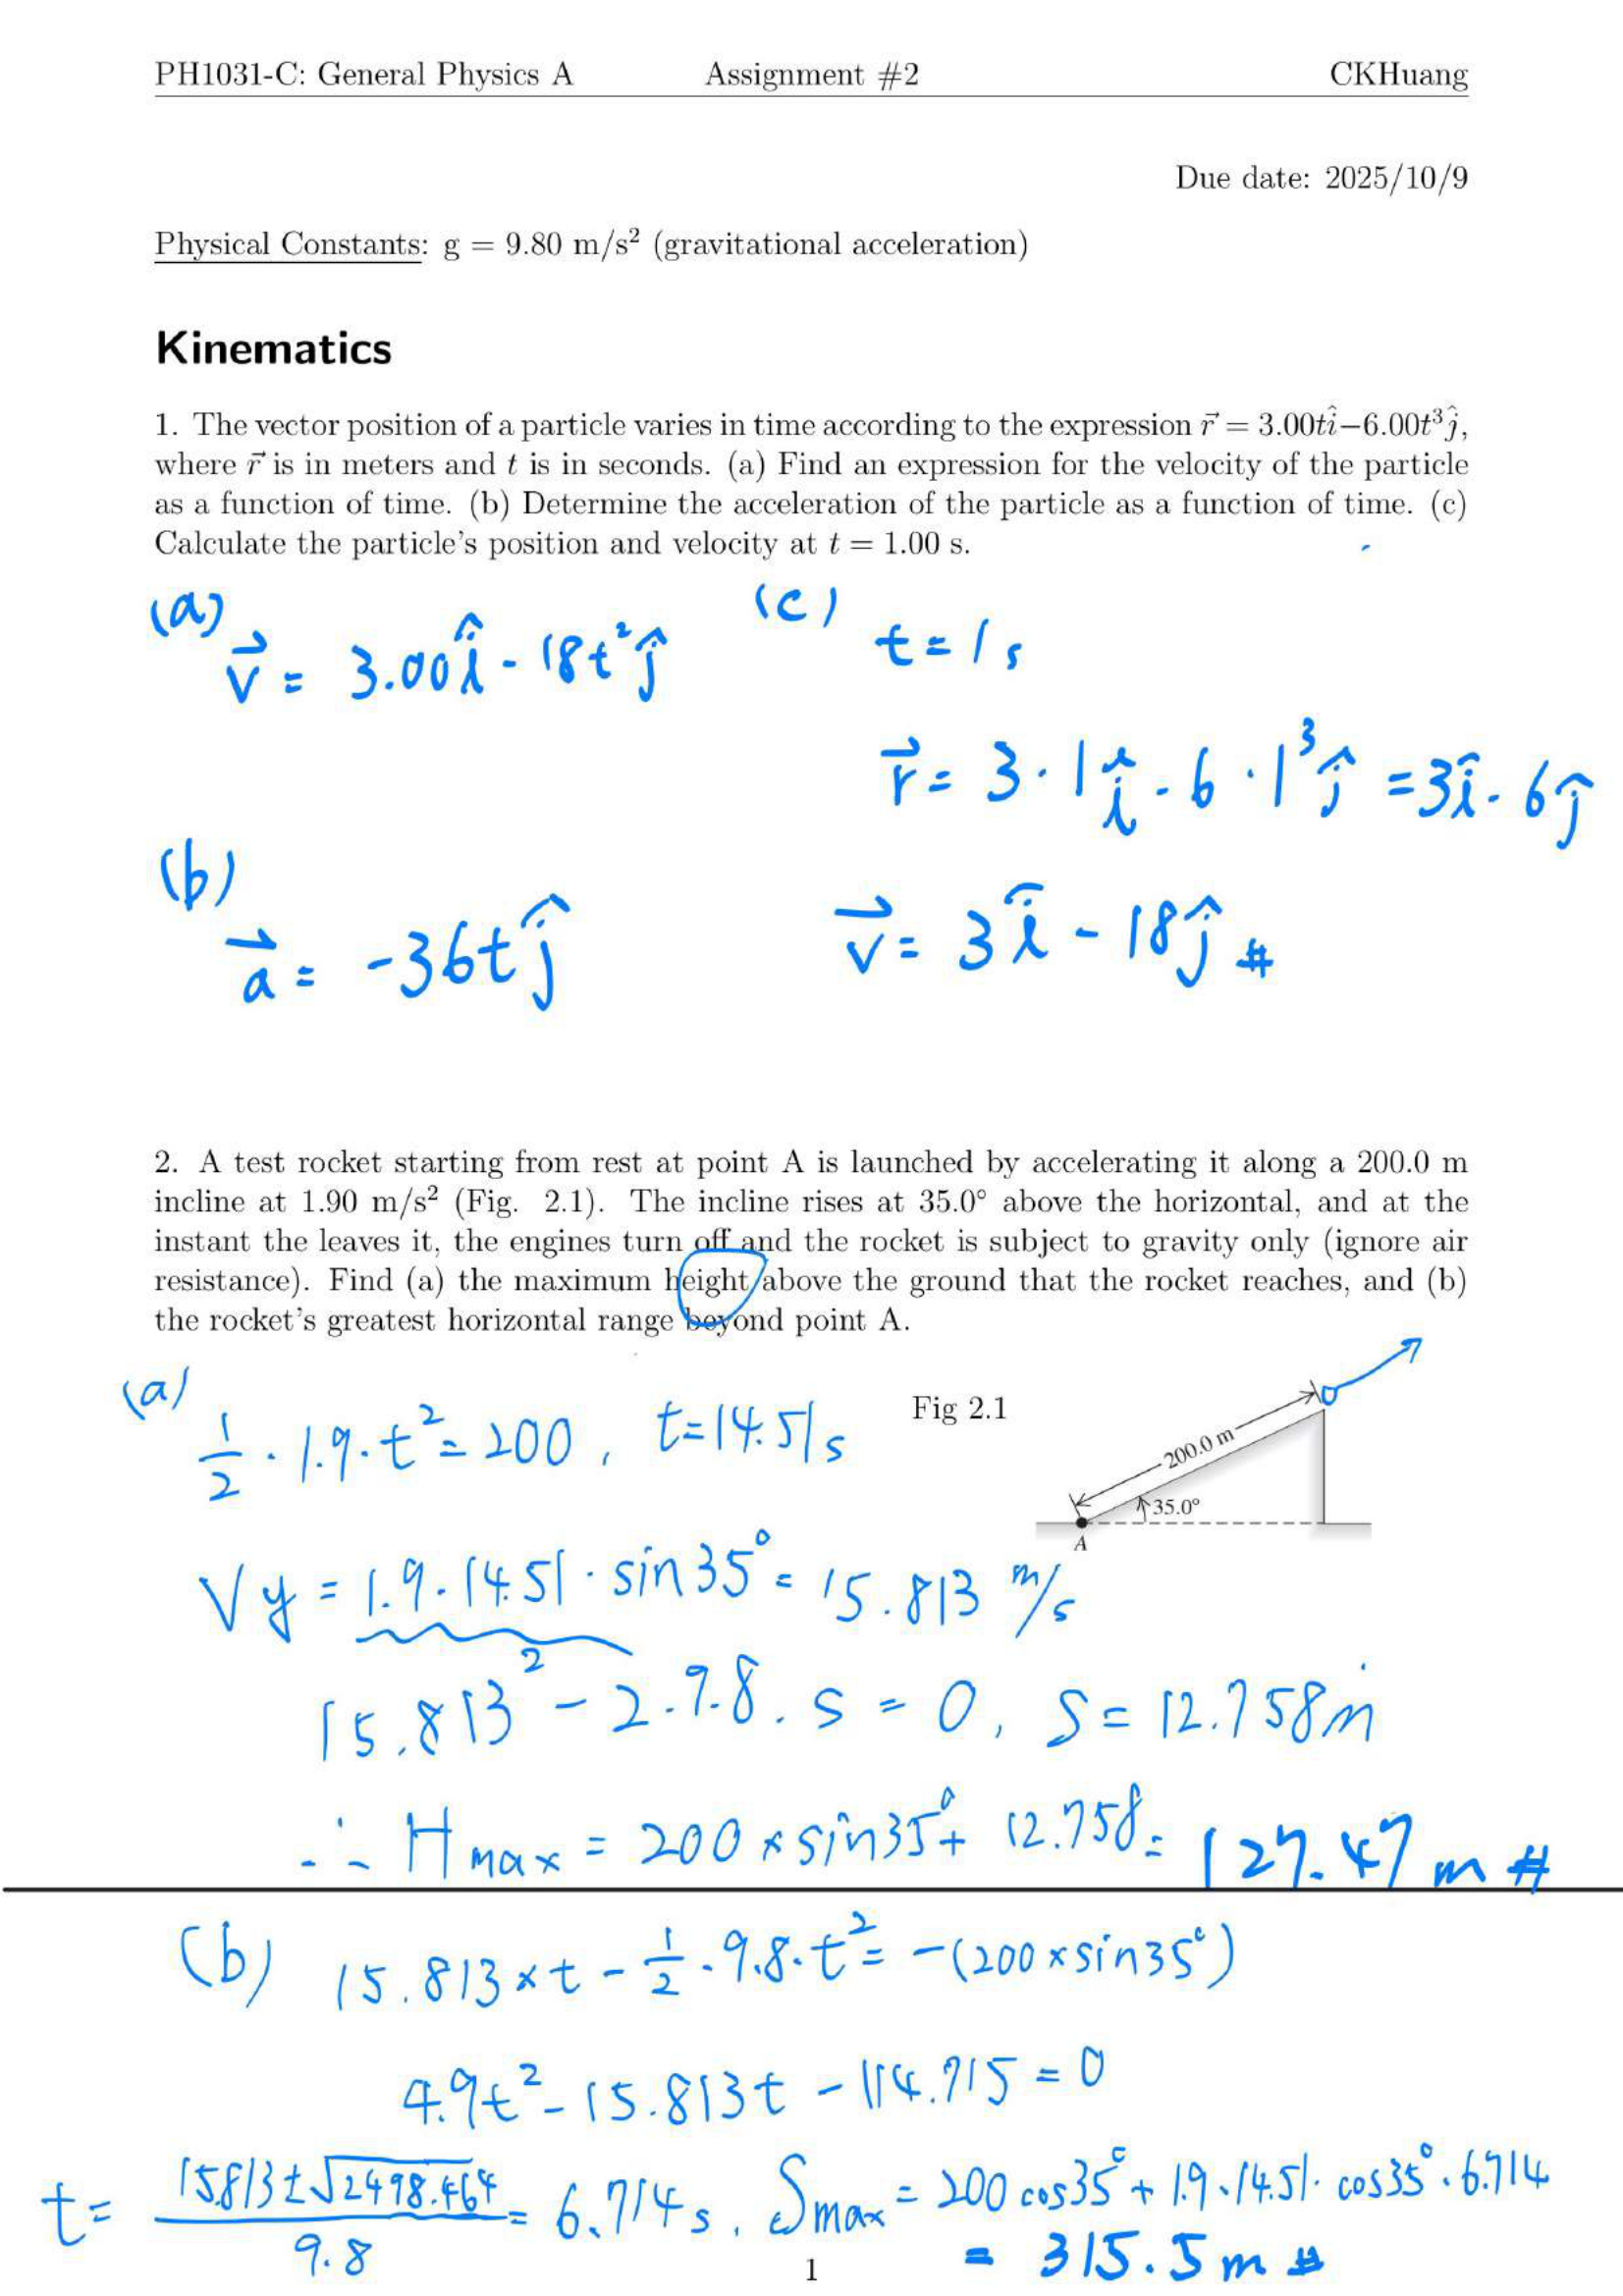 PH1031-C: General Physics A Assignment #2 CKHuang
Due date: 2025/10/9
Physical Constants: g = 9.80 m/s² (gravitational acceleration)
Kinematics
1. The vector position of a particle varies in time according to the expression r⃗ = 3.00tî−6.00t³ĵ,
where r⃗ is in meters and t is in seconds. (a) Find an expression for the velocity of the particle
as a function of time. (b) Determine the acceleration of the particle as a function of time. (c)
Calculate the particle's position and velocity at t = 1.00 s.
(a)
v⃗ = 3.00î - 18t²ĵ
(b)
a⃗ = -36tĵ
(c)
t = 1 s
r⃗ = 3·1î - 6·1³ĵ = 3î - 6ĵ
v⃗ = 3î - 18ĵ #
2. A test rocket starting from rest at point A is launched by accelerating it along a 200.0 m
incline at 1.90 m/s² (Fig. 2.1). The incline rises at 35.0° above the horizontal, and at the
instant the leaves it, the engines turn off and the rocket is subject to gravity only (ignore air
resistance). Find (a) the maximum height above the ground that the rocket reaches, and (b)
the rocket's greatest horizontal range beyond point A.
(a)
1/2 · 1.9 · t² = 200, t = 14.51 s
Fig 2.1
200.0 m
35.0°
A
Vy = 1.9 · 14.51 · sin35° = 15.813 m/s
15.813² - 2·9.8·s = 0, S = 12.758m
∴ Hmax = 200 × sin35° + 12.758 = 127.47 m #
(b) 15.813 × t - 1/2 · 9.8 · t² = -(200 × sin35°)
4.9t² - 15.813t - 114.715 = 0
t = (15.813 ± √2498.464) / 9.8 = 6.714 s, Smax = 200 cos35° + 1.9 · 14.51 · cos35° · 6.714
= 315.5 m #
1